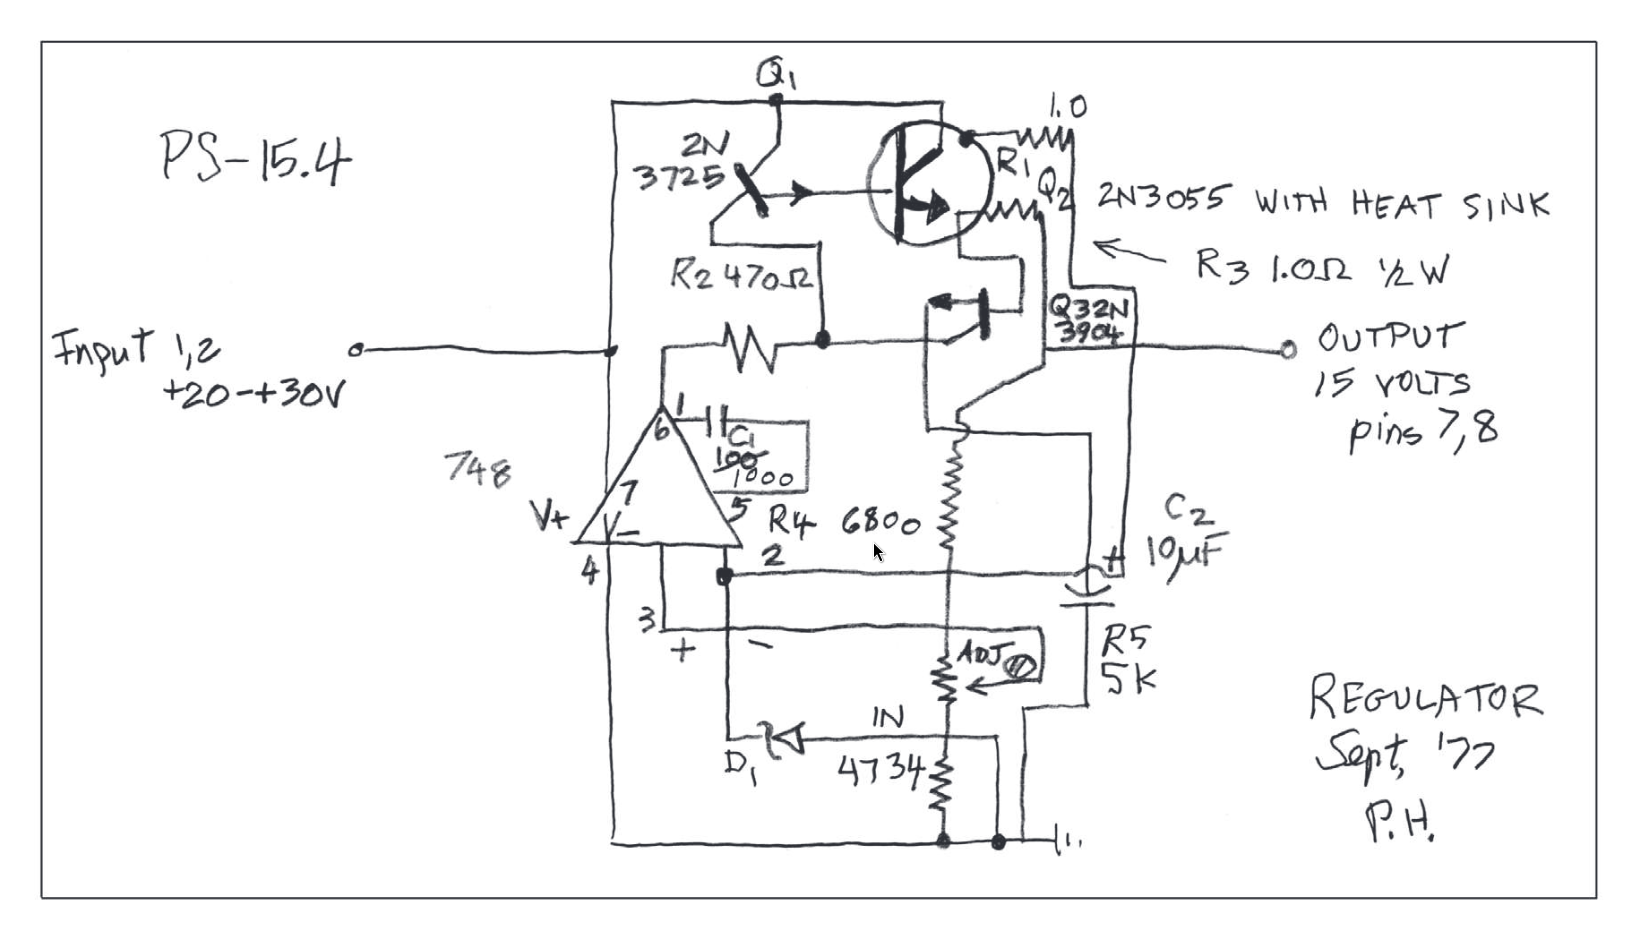 Q1
PS-15.4
1.0
2N
3725
R1
Q2
2N3055 WITH HEAT SINK
R3 1.0Ω 1/2 W
R2 470Ω
Q3 2N
3904
Input 1,2
+20-+30V
OUTPUT
15 VOLTS
pins 7,8
1
6
C1
100
1000
748
7
V+
V-
5
R4 6800
4
2
+
C2
10µF
3
+
-
ADJ
R5
5K
1N
4734
D1
REGULATOR
Sept, '77
P.H.